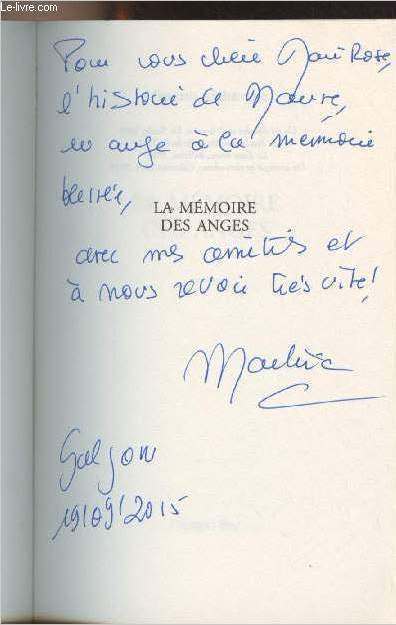 Le-livre.com
Pour vous chère Marie Rose,
l'histoire de Maure,
un ange à la mémoire
blessée,
LA MÉMOIRE
DES ANGES
avec mes amitiés et
à nous revoir très vite!
Martine
19/09/2015